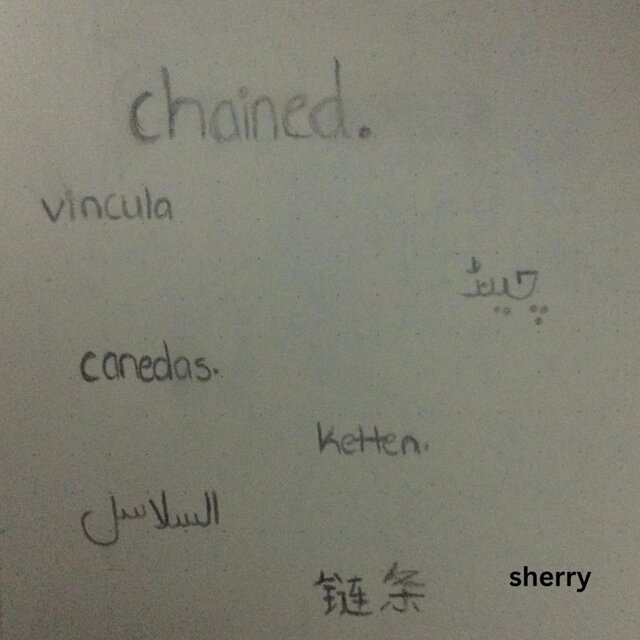 chained.
vincula
canedas.
ketten.
السلاسل
链条
sherry